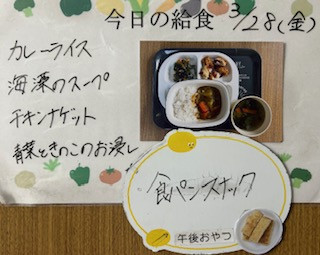 今日の給食 3/28(金)
カレーライス
海藻のスープ
チキンナゲット
青菜ときのこのお浸し
食パンスナック
午後おやつ